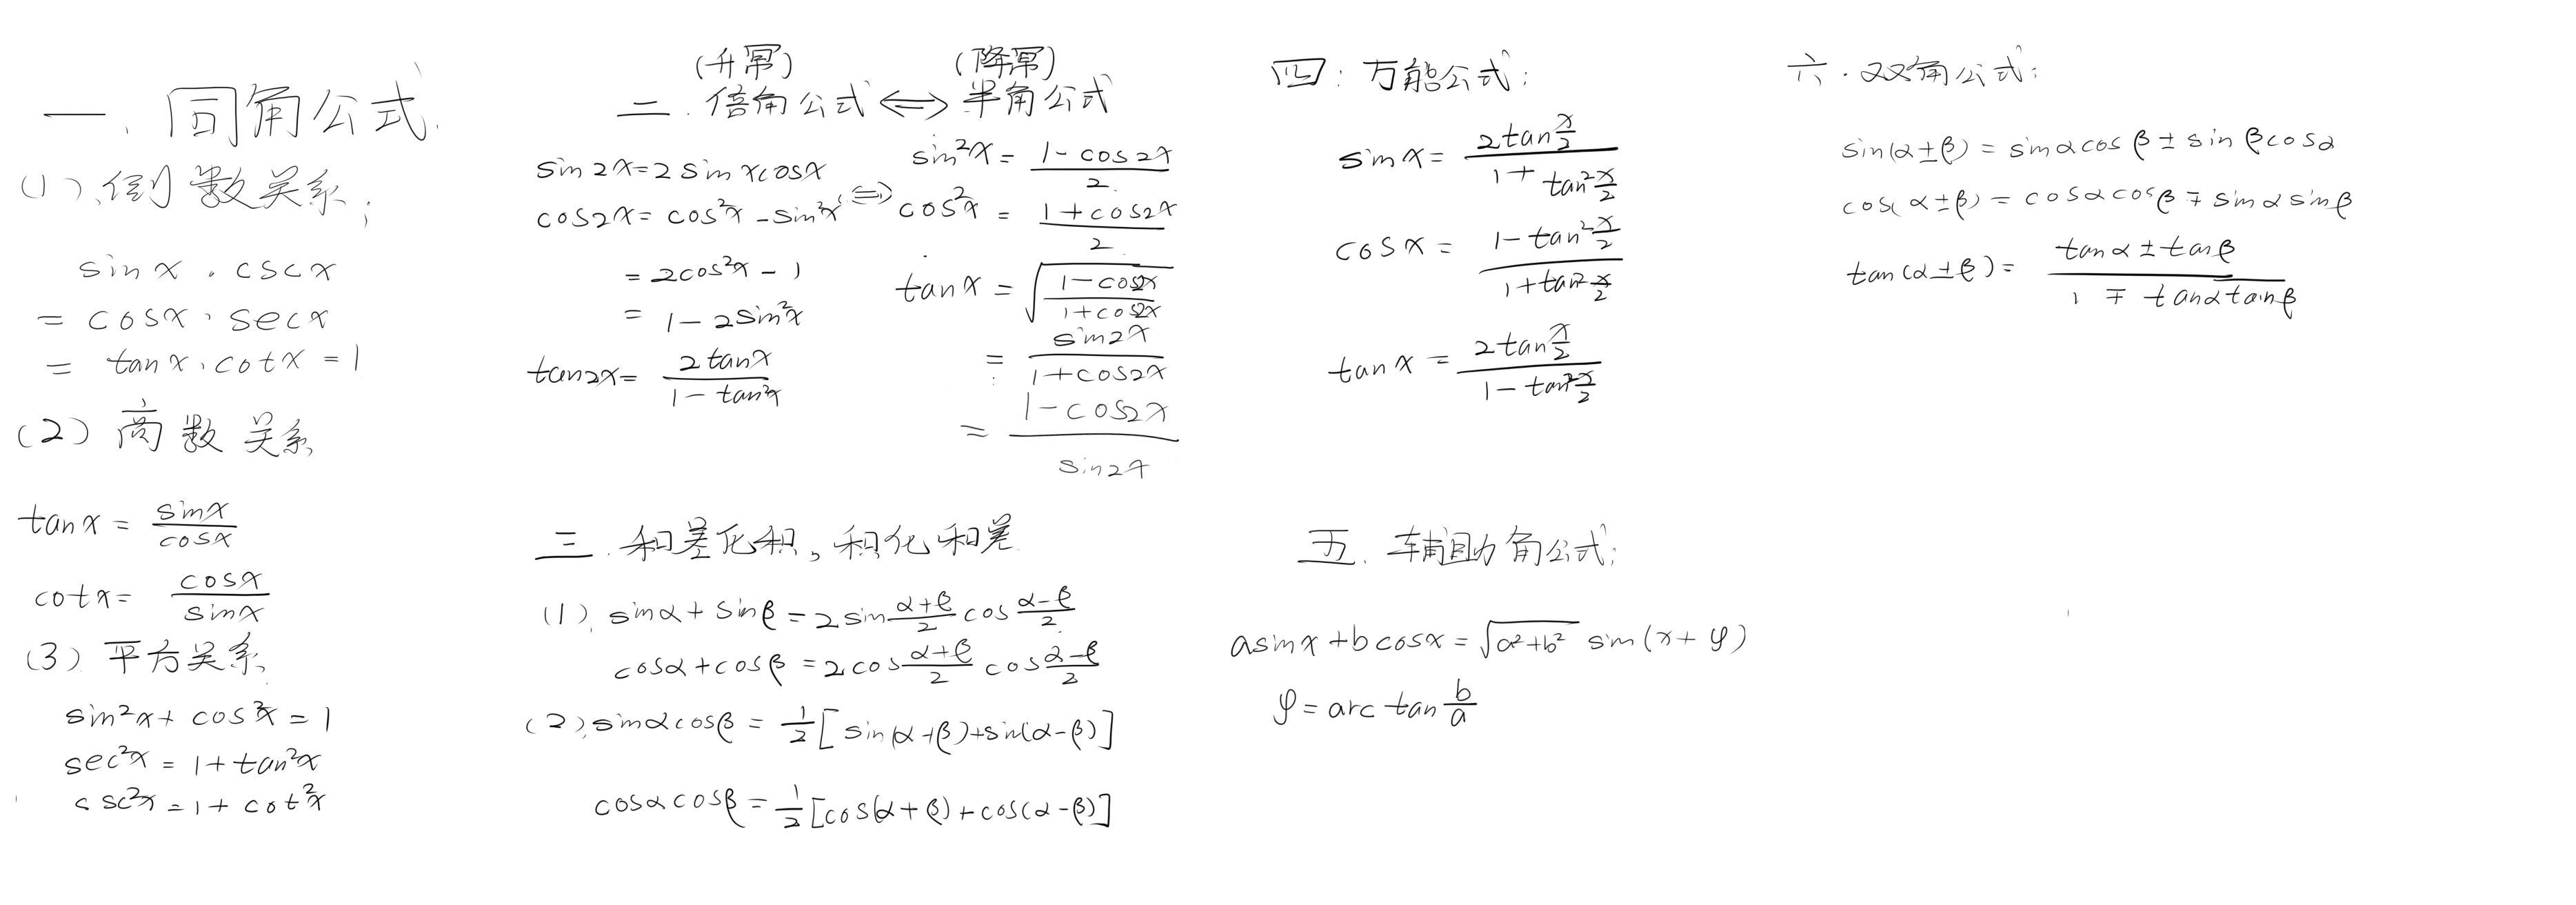 一、同角公式
(1)、倒数关系;
sinx · cscx
= cosx · secx
= tanx · cotx = 1
(2) 商数关系
tanx = sinx/cosx
cotx = cosx/sinx
(3) 平方关系
sin²x + cos²x = 1
sec²x = 1 + tan²x
csc²x = 1 + cot²x
(升幂) (降幂)
二. 倍角公式 ⟺ 半角公式
sin2x = 2sinxcosx
cos2x = cos²x - sin²x
= 2cos²x - 1
= 1 - 2sin²x
tan2x = 2tanx/(1 - tan²x)
⟺
sin²x = (1 - cos2x)/2
cos²x = (1 + cos2x)/2
tanx = √((1 - cos2x)/(1 + cos2x))
= sin2x/(1 + cos2x)
= (1 - cos2x)/sin2x
三. 和差化积, 积化和差
(1). sinα + sinβ = 2sin (α+β)/2 cos (α-β)/2
cosα + cosβ = 2cos (α+β)/2 cos (α-β)/2
(2). sinαcosβ = 1/2 [sin(α+β)+sin(α-β)]
cosαcosβ = 1/2 [cos(α+β)+cos(α-β)]
四: 万能公式:
sinx = 2tan(x/2)/(1 + tan²(x/2))
cosx = (1 - tan²(x/2))/(1 + tan²(x/2))
tanx = 2tan(x/2)/(1 - tan²(x/2))
五. 辅助角公式:
asinx + bcosx = √(a²+b²) sin(x + φ)
φ = arctan b/a
六. 双角公式:
sin(α±β) = sinαcosβ ± sinβcosα
cos(α±β) = cosαcosβ ∓ sinαsinβ
tan(α±β) = (tanα ± tanβ)/(1 ∓ tanαtanβ)